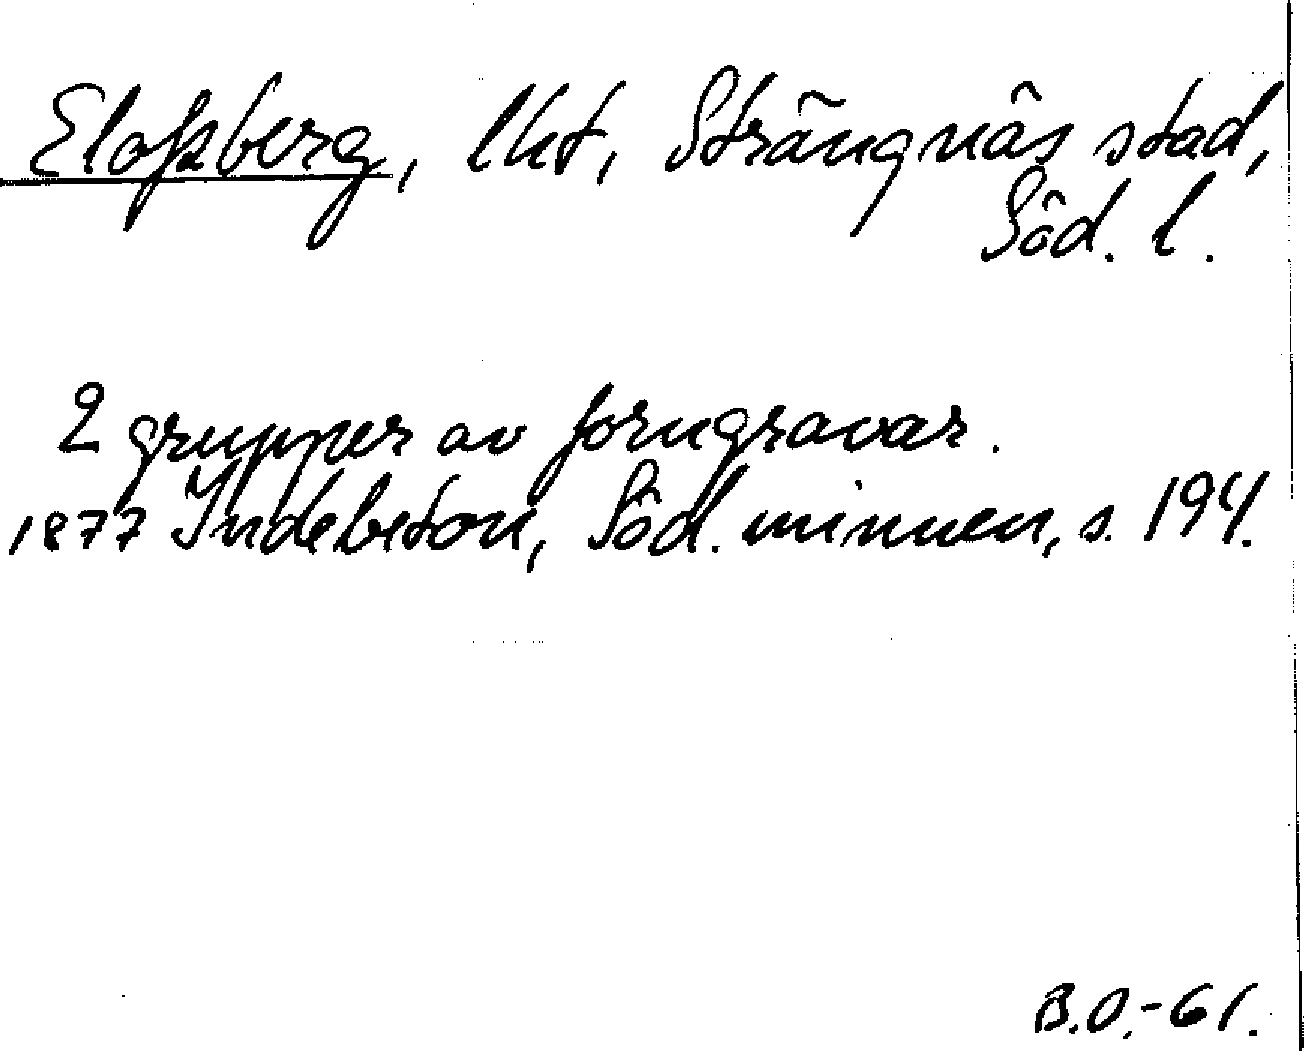 Elofsberg, lht, Strängnäs stad,
Söd. l.
2 grupper av forngravar.
1877 Indebetou, Söd. minnen, s. 194.
B.O.-61.